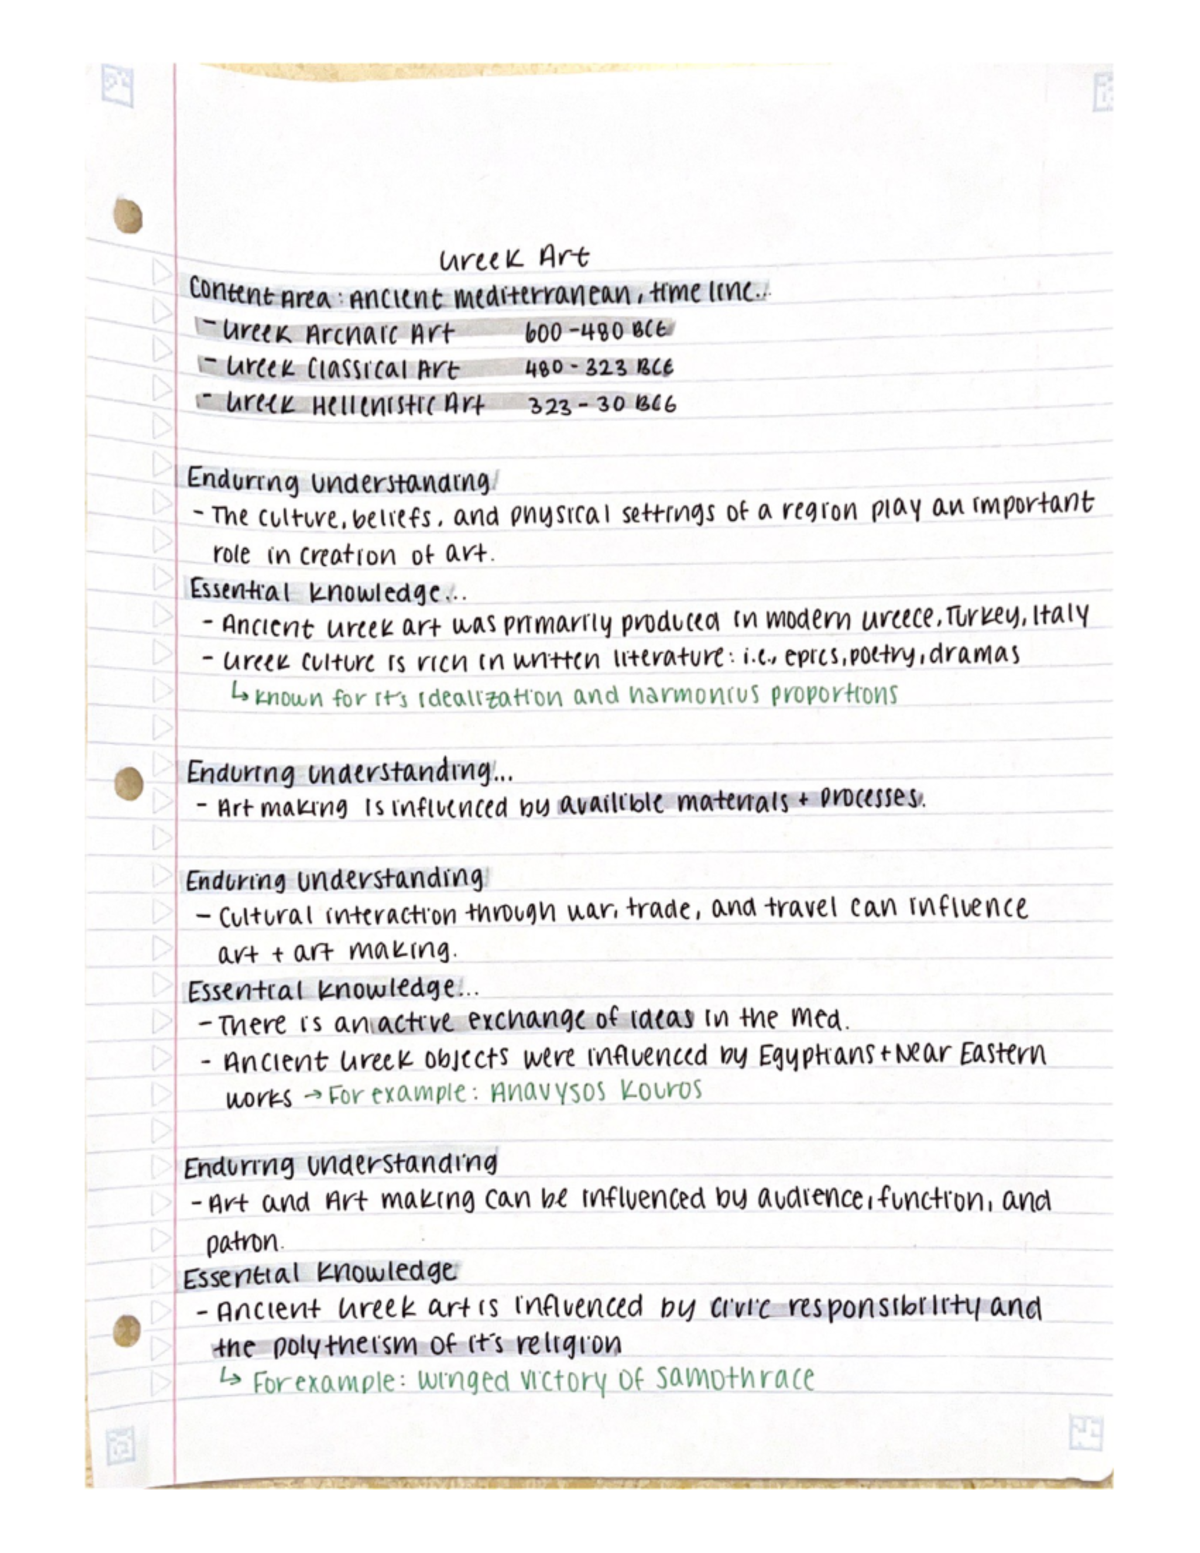 Greek Art
Content Area: Ancient mediterranean, time line...
- Greek Archaic Art 600-480 BCE
- Greek Classical Art 480-323 BCE
- Greek Hellenistic Art 323-30 BCE
Enduring understanding
- The culture, beliefs, and physical settings of a region play an important
role in creation of art.
Essential knowledge...
- Ancient Greek art was primarily produced in modern Greece, Turkey, Italy
- Greek culture is rich in written literature: i.e., epics, poetry, dramas
↳ known for it's idealization and harmonius proportions
Enduring understanding...
- Art making is influenced by availible materials + processes.
Enduring understanding
- Cultural interaction through war, trade, and travel can influence
art + art making.
Essential knowledge...
- There is an active exchange of ideas in the med.
- Ancient Greek objects were influenced by Egyptians + Near Eastern
works → For example: Anavysos Kouros
Enduring understanding
- Art and Art making can be influenced by audience, function, and
patron.
Essential Knowledge
- Ancient Greek art is influenced by civic responsibility and
the polytheism of it's religion
↳ For example: winged victory of Samothrace